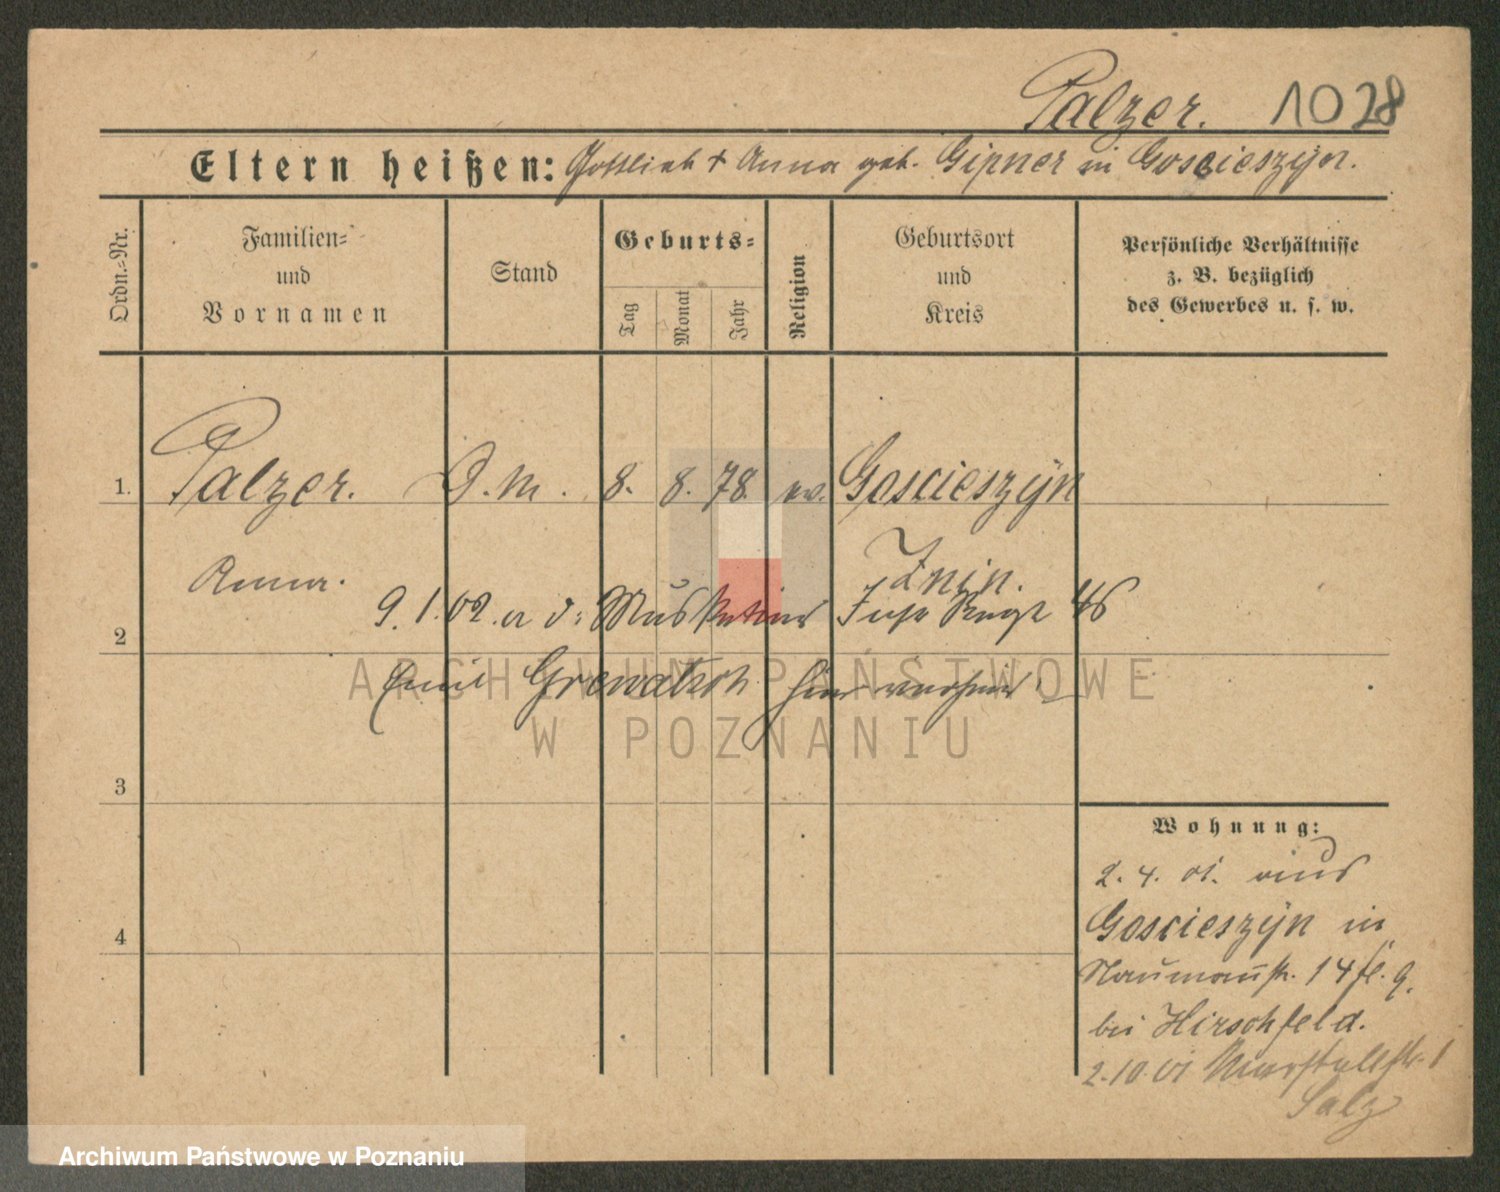 Palzer. 1028
Eltern heißen: Gottlieb + Anna geb. Gipner in Goscieszyn.
Ordn.-Nr.
Familien-
und
Vornamen
Stand
Geburts-
Tag
Monat
Jahr
Religion
Geburtsort
und
Kreis
Persönliche Verhältnisse
z. B. bezüglich
des Gewerbes u. s. w.
1. Palzer. D. M. 8. 8. 78. ev. Goscieszyn
Anna. Znin.
9. 1. 02. a d: Musketier Inf Regt 46
2
Emil Grewatsch hier verheir.
3
4
Wohnung:
2. 4. 01. aus
Goscieszyn in
Naumannstr. 14 fl. 9.
bei Hirschfeld.
2.10.01 Marstallstr. 1
Salz
ARCHIWUM PAŃSTWOWE
W POZNANIU
Archiwum Państwowe w Poznaniu